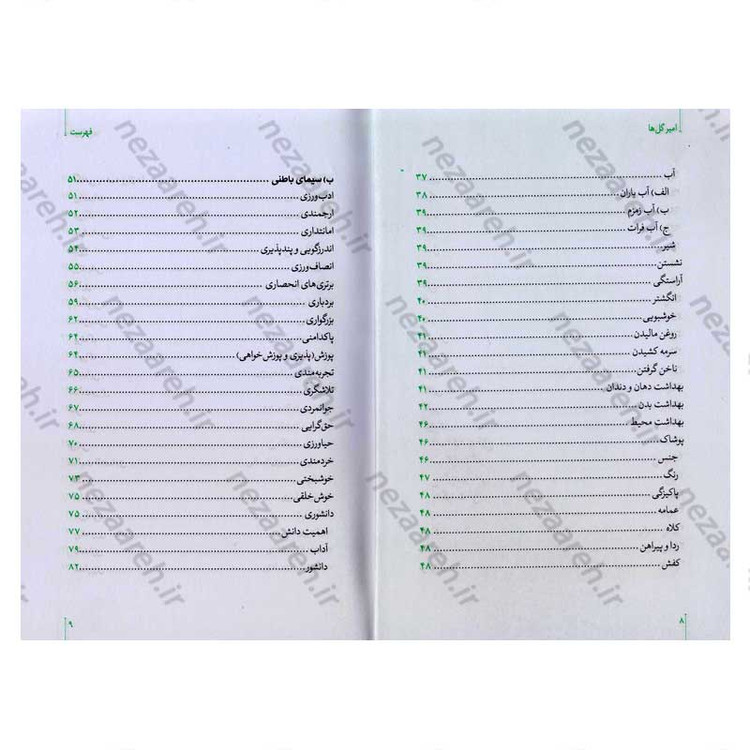 امیر گل‌ها
آب ۳۷
الف) آب باران ۳۸
ب) آب زمزم ۳۹
ج) آب فرات ۳۹
شیر ۳۹
نشستن ۳۹
آراستگی ۳۹
انگشتر ۴۰
خوشبویی ۴۰
روغن مالیدن ۴۱
سرمه کشیدن ۴۱
ناخن گرفتن ۴۱
بهداشت دهان و دندان ۴۱
بهداشت بدن ۴۲
بهداشت محیط ۴۶
پوشاک ۴۶
جنس ۴۶
رنگ ۴۷
پاکیزگی ۴۸
عمامه ۴۸
کلاه ۴۸
ردا و پیراهن ۴۸
کفش ۴۸
۸
فهرست
ب) سیمای باطنی ۵۱
ادب‌ورزی ۵۱
ارجمندی ۵۲
امانتداری ۵۳
اندرزگویی و پندپذیری ۵۴
انصاف‌ورزی ۵۵
برتری‌های انحصاری ۵۶
بردباری ۵۹
بزرگواری ۶۲
پاکدامنی ۶۴
پوزش(پذیری و پوزش خواهی) ۶۴
تجربه‌مندی ۶۵
تلاشگری ۶۶
جوانمردی ۶۷
حق‌گرایی ۶۸
حیاورزی ۷۰
خردمندی ۷۱
خوشبختی ۷۳
خوش‌خلقی ۷۵
دانشوری ۷۵
اهمیت دانش ۷۷
آداب ۷۹
دانشور ۸۲
۹
nezaareh.ir